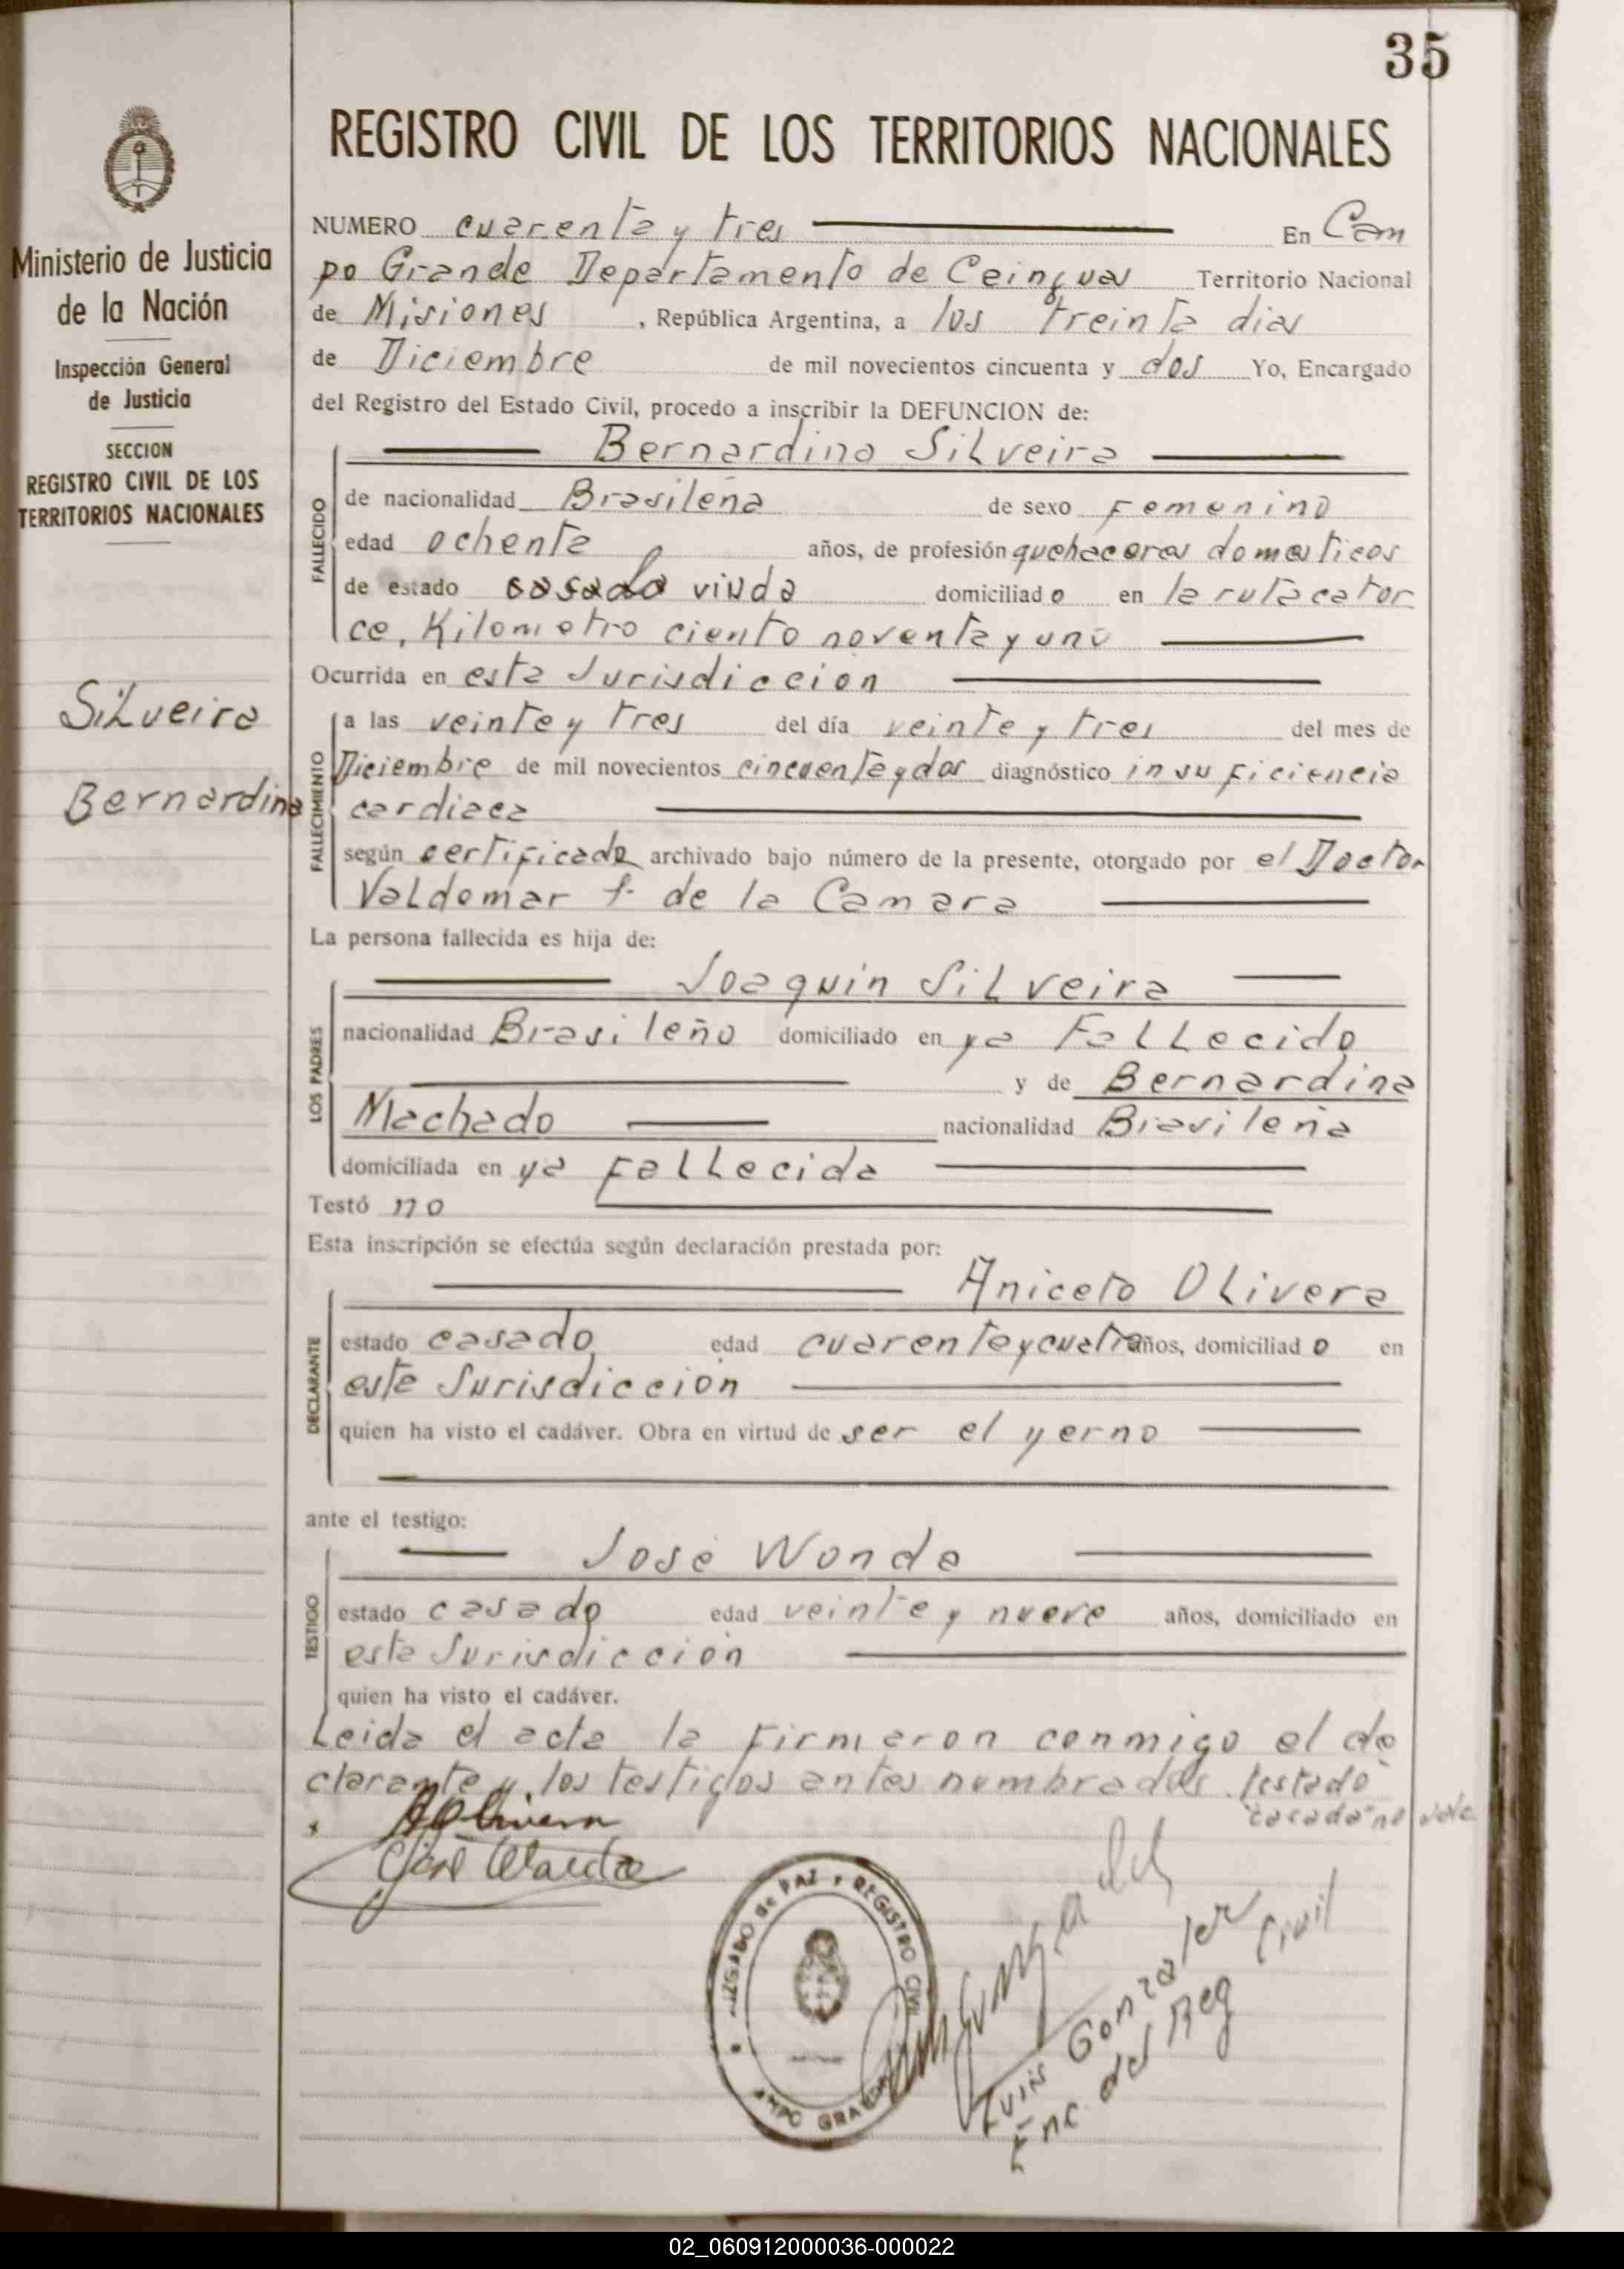 35
REGISTRO CIVIL DE LOS TERRITORIOS NACIONALES
Ministerio de Justicia
de la Nación
Inspección General
de Justicia
SECCION
REGISTRO CIVIL DE LOS
TERRITORIOS NACIONALES
Silveira
Bernardina
NUMERO cuarenta y tres En Cam
po Grande Departamento de Cainguas Territorio Nacional
de Misiones , República Argentina, a los treinta dias
de Diciembre de mil novecientos cincuenta y dos Yo, Encargado
del Registro del Estado Civil, procedo a inscribir la DEFUNCION de:
Bernardina Silveira
FALLECIDO
de nacionalidad Brasileña de sexo Femenino
edad ochenta años, de profesión quehaceres domesticos
de estado casada viuda domiciliado en la ruta cator
ce, Kilometro ciento noventa y uno
Ocurrida en esta Jurisdiccion
FALLECIMIENTO
a las veinte y tres del día veinte y tres del mes de
Diciembre de mil novecientos cincuenta y dos diagnóstico insuficiencia
cardiaca
según certificado archivado bajo número de la presente, otorgado por el Doctor
Valdemar de la Camara
La persona fallecida es hija de:
LOS PADRES
Joaquin Silveira
nacionalidad Brasileño domiciliado en ya Fallecido
y de Bernardina
Machado nacionalidad Brasileña
domiciliada en ya Fallecida
Testó no
Esta inscripción se efectúa según declaración prestada por:
DECLARANTE
Aniceto Olivera
estado casado edad cuarenta y cuatro años, domiciliado en
esta Jurisdicción
quien ha visto el cadáver. Obra en virtud de ser el yerno
ante el testigo:
TESTIGO
José Wonda
estado casado edad veinte y nueve años, domiciliado en
esta Jurisdicción
quien ha visto el cadáver.
Leida el acta la Firmaron conmigo el de
clarante y los testigos antes nombrados. testado
"casada" no vale
AOlivera
José
JUZGADO de PAZ y REGISTRO CIVIL
CAMPO GRANDE
Luis Gonzalez
Enc. del Reg Civil
02_060912000036-000022